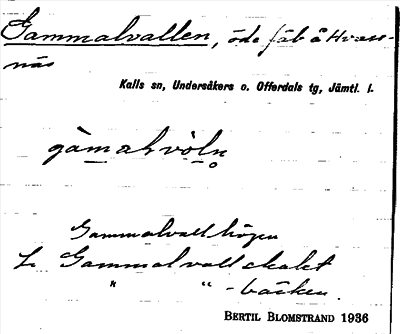 Gammalvallen, öde fäb å Hvass-
näs
Kalls sn, Undersåkers o. Offerdals tg, Jämtl. l.
gàmalvòln̥
Gammalvallhögen
L Gammalvall
" " - bäcken.
BERTIL BLOMSTRAND 1936